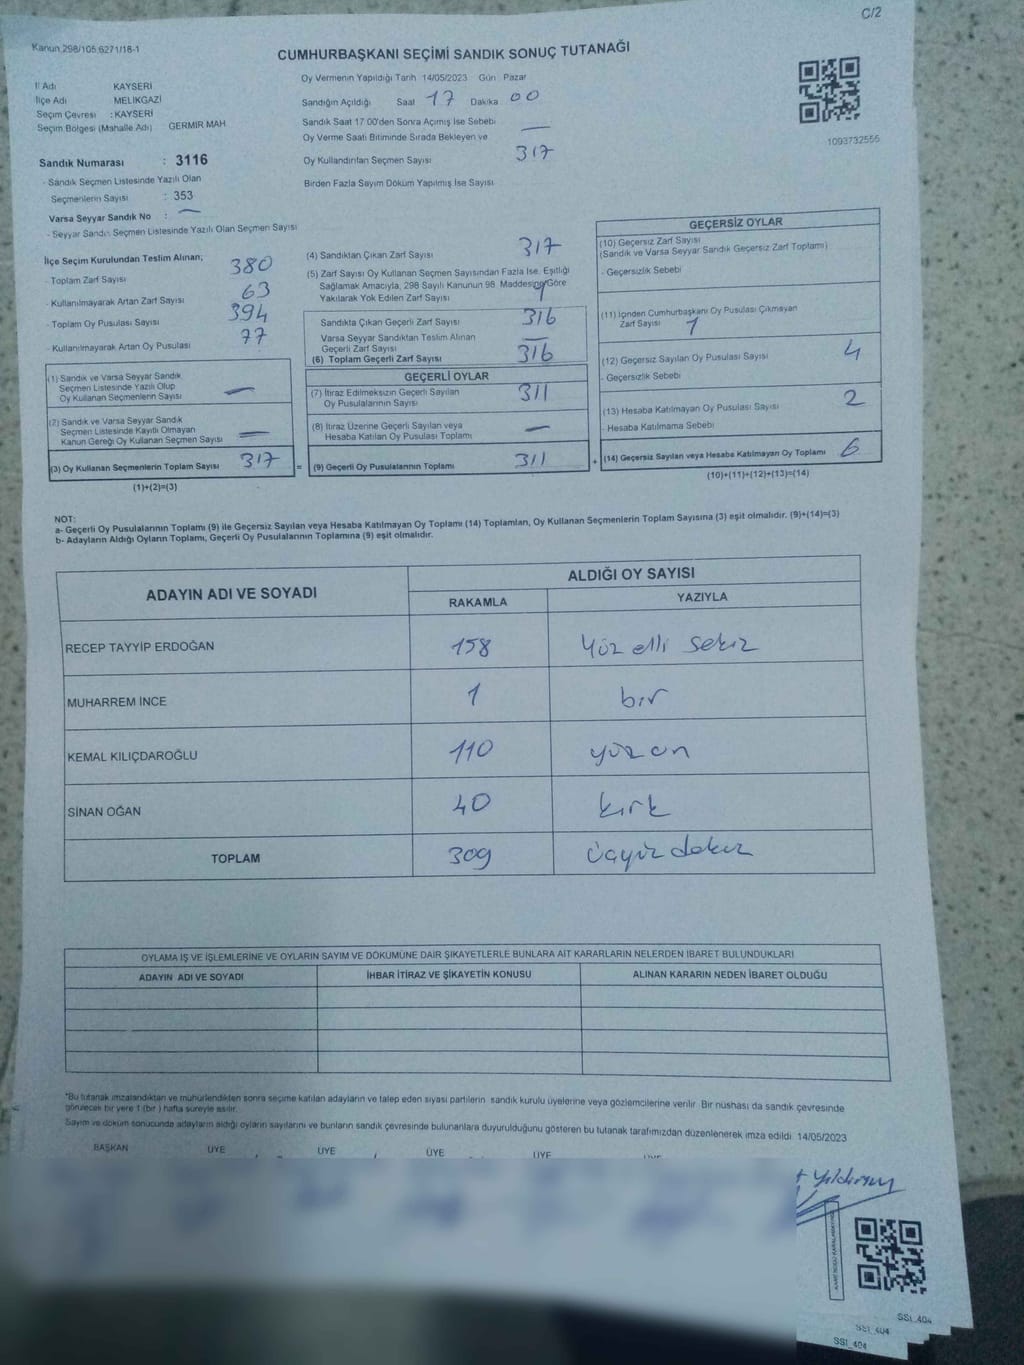 C/2
Kanun 298/105 6271/18-1
CUMHURBAŞKANI SEÇİMİ SANDIK SONUÇ TUTANAĞI
İl Adı KAYSERİ
İlçe Adı MELİKGAZİ
Seçim Çevresi : KAYSERİ
Seçim Bölgesi (Mahalle Adı) GERMİR MAH
Sandık Numarası : 3116
- Sandık Seçmen Listesinde Yazılı Olan
Seçmenlerin Sayısı : 353
Varsa Seyyar Sandık No : —
- Seyyar Sandık Seçmen Listesinde Yazılı Olan Seçmen Sayısı
Oy Vermenin Yapıldığı Tarih 14/05/2023 Gün Pazar
Sandığın Açıldığı Saat 17 Dakika 00
Sandık Saat 17 00'den Sonra Açımış İse Sebebi —
Oy Verme Saati Bitiminde Sırada Bekleyen ve
Oy Kullandırılan Seçmen Sayısı 317
Birden Fazla Sayım Döküm Yapılmış İse Sayısı
1093732555
İlçe Seçim Kurulundan Teslim Alınan;
- Toplam Zarf Sayısı 380
- Kullanılmayarak Artan Zarf Sayısı 63
- Toplam Oy Pusulası Sayısı 394
- Kullanılmayarak Artan Oy Pusulası 77
(1) Sandık ve Varsa Seyyar Sandık
Seçmen Listesinde Yazılı Olup
Oy Kullanan Seçmenlerin Sayısı —
(2) Sandık ve Varsa Seyyar Sandık
Seçmen Listesinde Kayıtlı Olmayan
Kanun Gereği Oy Kullanan Seçmen Sayısı —
(3) Oy Kullanan Seçmenlerin Toplam Sayısı 317 =
(1)+(2)=(3)
(4) Sandıktan Çıkan Zarf Sayısı 317
(5) Zarf Sayısı Oy Kullanan Seçmen Sayısından Fazla İse, Eşitliği
Sağlamak Amacıyla, 298 Sayılı Kanunun 98. Maddesine Göre
Yakılarak Yok Edilen Zarf Sayısı
Sandıkta Çıkan Geçerli Zarf Sayısı 316
Varsa Seyyar Sandıktan Teslim Alınan
Geçerli Zarf Sayısı —
(6) Toplam Geçerli Zarf Sayısı 316
GEÇERLİ OYLAR
(7) İtiraz Edilmeksizin Geçerli Sayılan
Oy Pusulalarının Sayısı 311
(8) İtiraz Üzerine Geçerli Sayılan veya
Hesaba Katılan Oy Pusulası Toplamı —
(9) Geçerli Oy Pusulalarının Toplamı 311 +
GEÇERSİZ OYLAR
(10) Geçersiz Zarf Sayısı
(Sandık ve Varsa Seyyar Sandık Geçersiz Zarf Toplamı)
- Geçersizlik Sebebi
(11) İçinden Cumhurbaşkanı Oy Pusulası Çıkmayan
Zarf Sayısı 1
(12) Geçersiz Sayılan Oy Pusulası Sayısı 4
- Geçersizlik Sebebi
(13) Hesaba Katılmayan Oy Pusulası Sayısı 2
- Hesaba Katılmama Sebebi
(14) Geçersiz Sayılan veya Hesaba Katılmayan Oy Toplamı 6
(10)+(11)+(12)+(13)=(14)
NOT:
a- Geçerli Oy Pusulalarının Toplamı (9) ile Geçersiz Sayılan veya Hesaba Katılmayan Oy Toplamı (14) Toplamları, Oy Kullanan Seçmenlerin Toplam Sayısına (3) eşit olmalıdır. (9)+(14)=(3)
b- Adayların Aldığı Oyların Toplamı, Geçerli Oy Pusulalarının Toplamına (9) eşit olmalıdır.
ADAYIN ADI VE SOYADI
ALDIĞI OY SAYISI
RAKAMLA YAZIYLA
RECEP TAYYİP ERDOĞAN 158 Yüz elli sekiz
MUHARREM İNCE 1 bir
KEMAL KILIÇDAROĞLU 110 yüz on
SİNAN OĞAN 40 kırk
TOPLAM 309 üçyüz dokuz
OYLAMA İŞ VE İŞLEMLERİNE VE OYLARIN SAYIM VE DÖKÜMÜNE DAİR ŞİKAYETLERLE BUNLARA AİT KARARLARIN NELERDEN İBARET BULUNDUKLARI
ADAYIN ADI VE SOYADI İHBAR İTİRAZ VE ŞİKAYETİN KONUSU ALINAN KARARIN NEDEN İBARET OLDUĞU
*Bu tutanak imzalandıktan ve mühürlendikten sonra seçime katılan adayların ve talep eden siyasi partilerin sandık kurulu üyelerine veya gözlemcilerine verilir. Bir nüshası da sandık çevresinde
görülecek bir yere 1 (bir ) hafta süreyle asılır.
Sayım ve döküm sonucunda adayların aldığı oyların sayılarını ve bunların sandık çevresinde bulunanlara duyurulduğunu gösteren bu tutanak tarafımızdan düzenlenerek imza edildi. 14/05/2023
BAŞKAN ÜYE ÜYE ÜYE ÜYE
Yıldırım
SSI_404
SSI_404
SSI_404